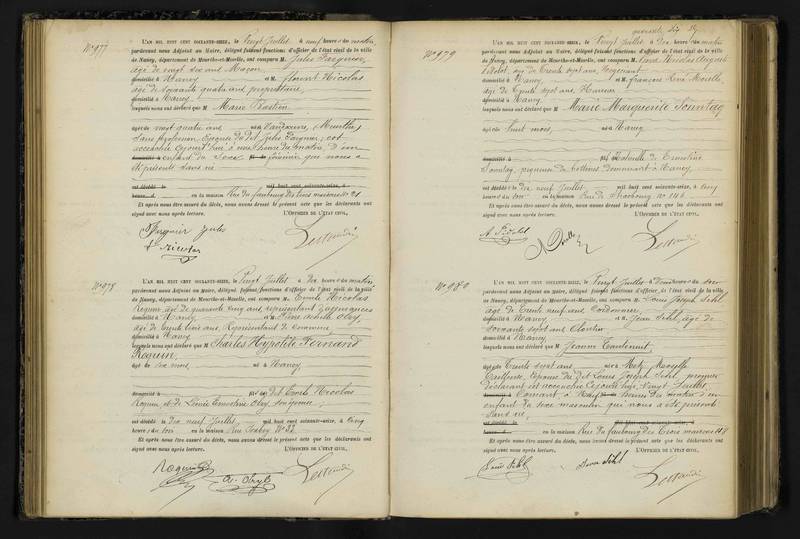 N° 977
L'AN MIL HUIT CENT SOIXANTE-SEIZE, le Vingt Juillet à neuf heures du matin
pardevant nous Adjoint au Maire, délégué faisant fonctions d'officier de l'état civil de la ville
de Nancy, département de Meurthe-et-Moselle, ont comparu M. Jules
âgé de vingt six ans Maçon
domicilié à Nancy et M. Florent Nicolas
âgé de soixante quatre ans propriétaire
domicilié à Nancy
lesquels nous ont déclaré que M Marie Bastien
âgée de vingt quatre ans née à Vandoeuvre, (Meurthe)
sans profession, Epouse du dit Jules est
accouchée cejourd'hui à une heure du matin, d'un
domicilié à enfant du sexe féminin que nous a
été présenté sans vie
est décédé le mil huit cent soixante-seize, à
heure d en la maison Rue du faubourg des trois maisons N° 21
Et après nous être assuré du décès, nous avons dressé le présent acte que les déclarants ont
signé avec nous après lecture. L'OFFICIER DE L'ÉTAT CIVIL,
Jules
N° 978
L'AN MIL HUIT CENT SOIXANTE-SEIZE, le Vingt Juillet à Dix heures du matin
pardevant nous Adjoint au Maire, délégué faisant fonctions d'officier de l'état civil de la ville
de Nancy, département de Meurthe-et-Moselle, ont comparu M. Emile Nicolas
Roquin âgé de quarante cinq ans, représentant d'assurances
domicilié à Nancy et M. Pierre Achille Obry,
âgé de trente trois ans, Représentant de commerce
domicilié à Nancy
lesquels nous ont déclaré que M Charles Hypolite Fernand
Roquin,
âgé de six mois, né à Nancy
domicilié à fils du dit Emile Nicolas
Roquin et de Ernestine Obry, son épouse,
est décédé le dix neuf Juillet, mil huit cent soixante-seize, à cinq
heures du soir en la maison Rue
Et après nous être assuré du décès, nous avons dressé le présent acte que les déclarants ont
signé avec nous après lecture. L'OFFICIER DE L'ÉTAT CIVIL,
Roquin
N° 979
L'AN MIL HUIT CENT SOIXANTE-SEIZE, le Vingt Juillet à Dix heures du matin
pardevant nous Adjoint au Maire, délégué faisant fonctions d'officier de l'état civil de la ville
de Nancy, département de Meurthe-et-Moselle, ont comparu M. Nicolas
âgé de Trente sept ans,
domicilié à Nancy et M. François René
âgé de Trente sept ans
domicilié à Nancy
lesquels nous ont déclaré que M Marie Marguerite Sonntag
âgée de huit mois, née à Nancy
domicilié à fille naturelle de Ernestine
Sonntag, piqueuse de bottines demeurant à Nancy
est décédé le dix neuf Juillet mil huit cent soixante-seize, à cinq
heures du soir en la maison Rue de Strasbourg N° 146
Et après nous être assuré du décès, nous avons dressé le présent acte que les déclarants ont
signé avec nous après lecture. L'OFFICIER DE L'ÉTAT CIVIL,
N° 980
L'AN MIL HUIT CENT SOIXANTE-SEIZE, le Vingt Juillet à heures du soir
pardevant nous Adjoint au Maire, délégué faisant fonctions d'officier de l'état civil de la ville
de Nancy, département de Meurthe-et-Moselle, ont comparu M. Louis Joseph Sihl
âgé de Trente neuf ans Cordonnier,
domicilié à Nancy et M. Jean Sihl, âgé de
soixante sept ans
domicilié à Nancy
lesquels nous ont déclaré que M Jeanne
âgée de Trente sept ans née à Metz Moselle
Tailleuse, Epouse du dit Louis Joseph Sihl, premier
déclarant est accouchée cejourd'hui, Vingt Juillet,
domicilié à Courant à Neuf heures du matin d'un
enfant du sexe masculin qui nous a été présenté
sans vie,
est décédé le mil huit cent soixante-seize, à
heure d en la maison Rue du faubourg des Trois maisons
Et après nous être assuré du décès, nous avons dressé le présent acte que les déclarants ont
signé avec nous après lecture. L'OFFICIER DE L'ÉTAT CIVIL,
Louis Sihl Jean Sihl